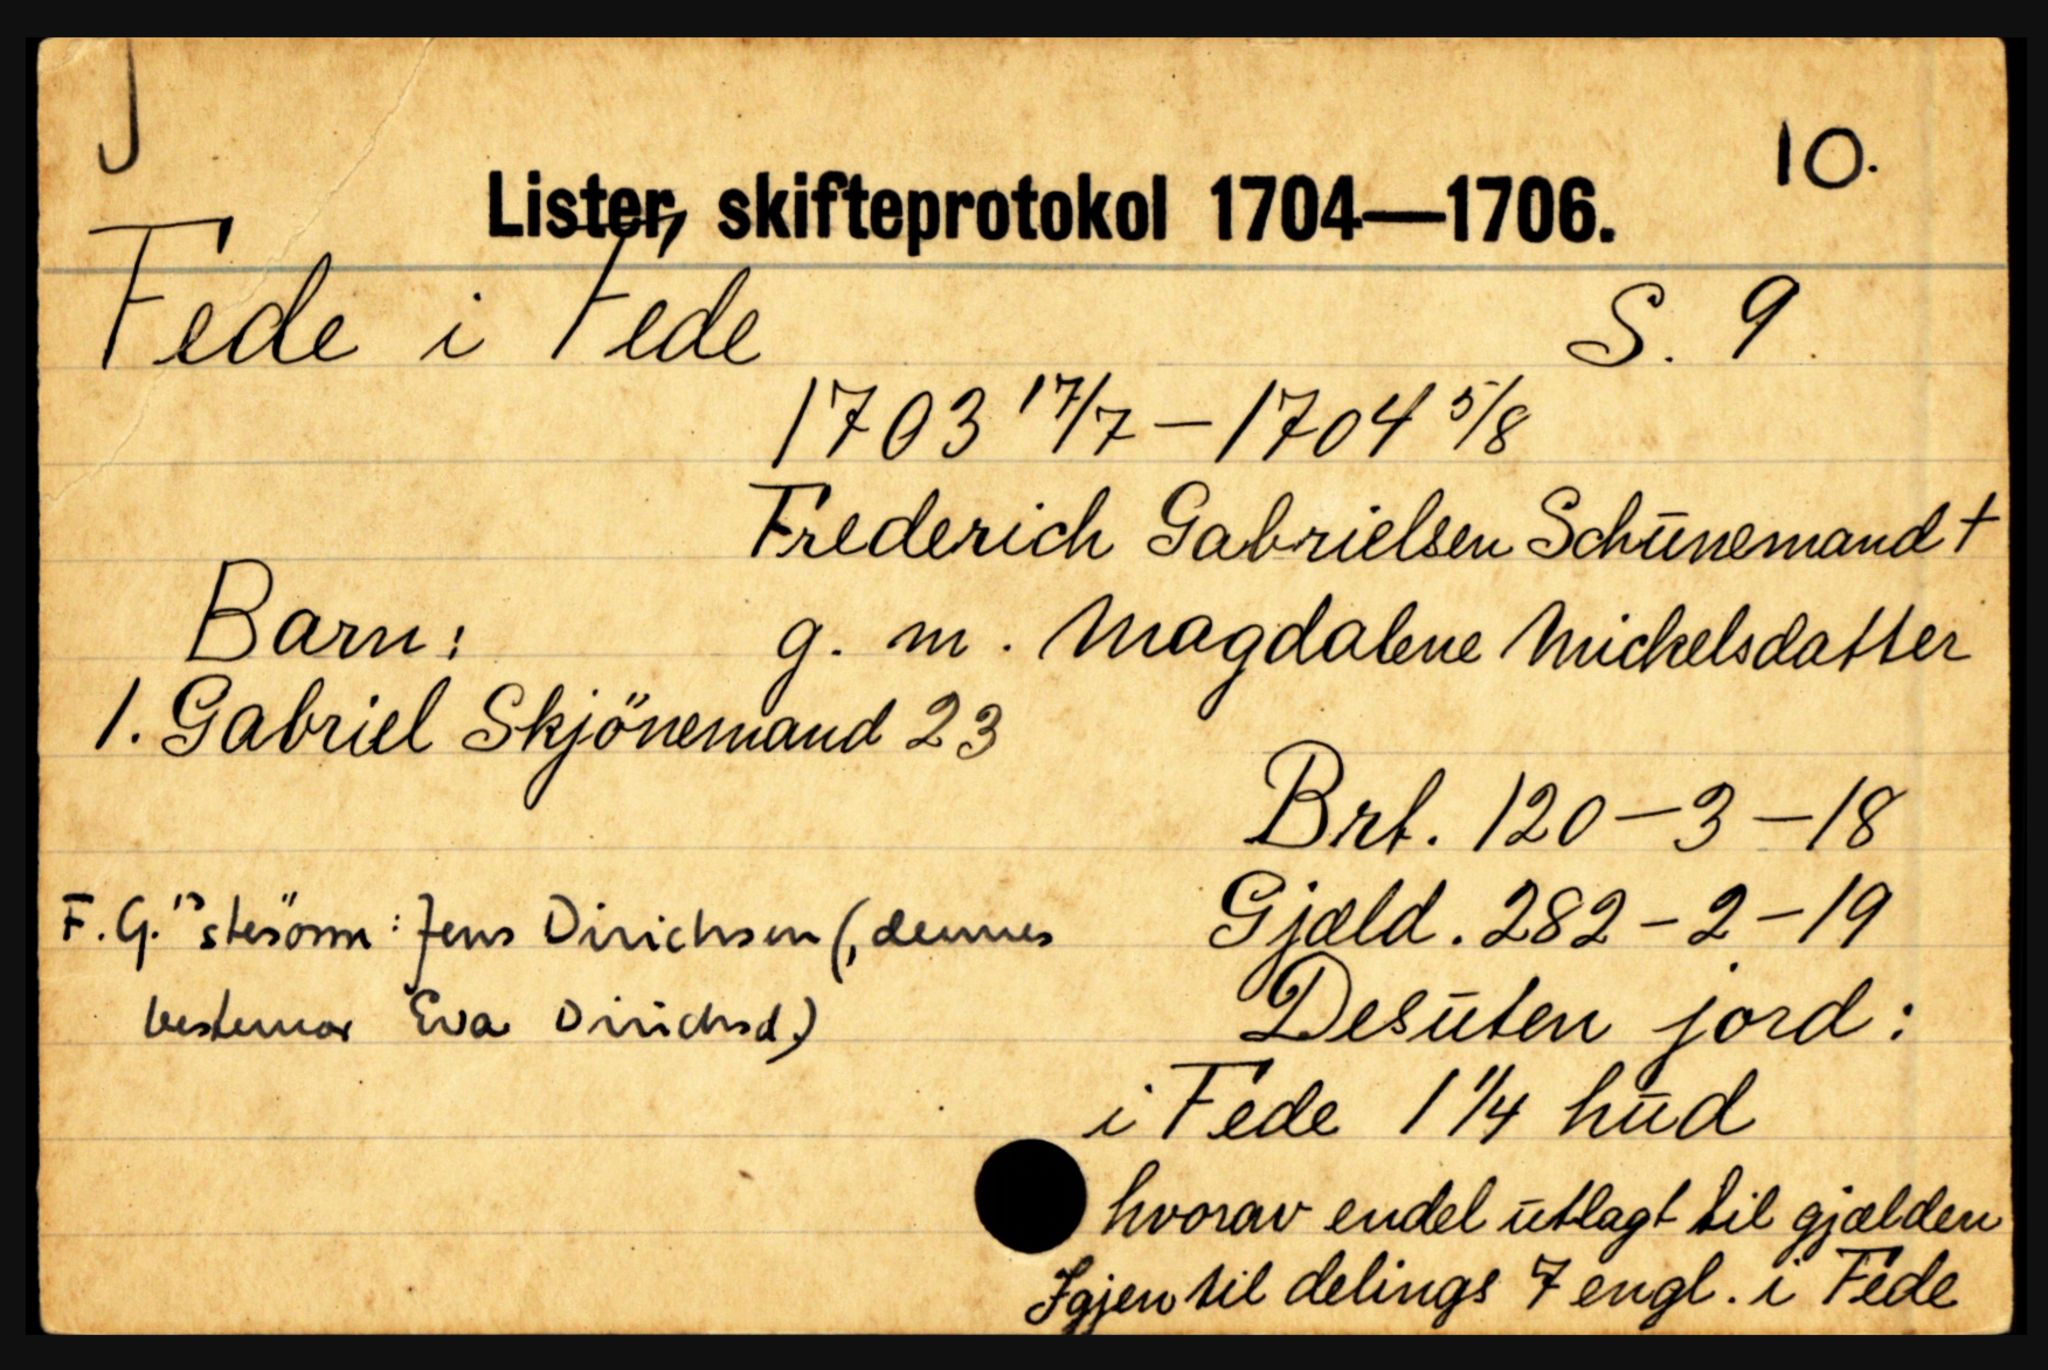 J
10.
Lister, skifteprotokol 1704—1706.
Fede i Fede S. 9.
1703 17/7 – 1704 5/8
Frederich Gabrielsen Schünemand †
Barn: g. m. Magdalene Mickelsdatter
1. Gabriel Skjönemand 23
Brt. 120 – 3 – 18
F. G.'s stesönn: Jens Dirichsen (, dennes
Gjæld. 282 – 2 – 19
bestemor Eva Dirichsd.)
Desuten jord:
i Fede 1 1/4 hud
hvorav endel utlagt til gjælden
Igjen til delings 7 engl. i Fede